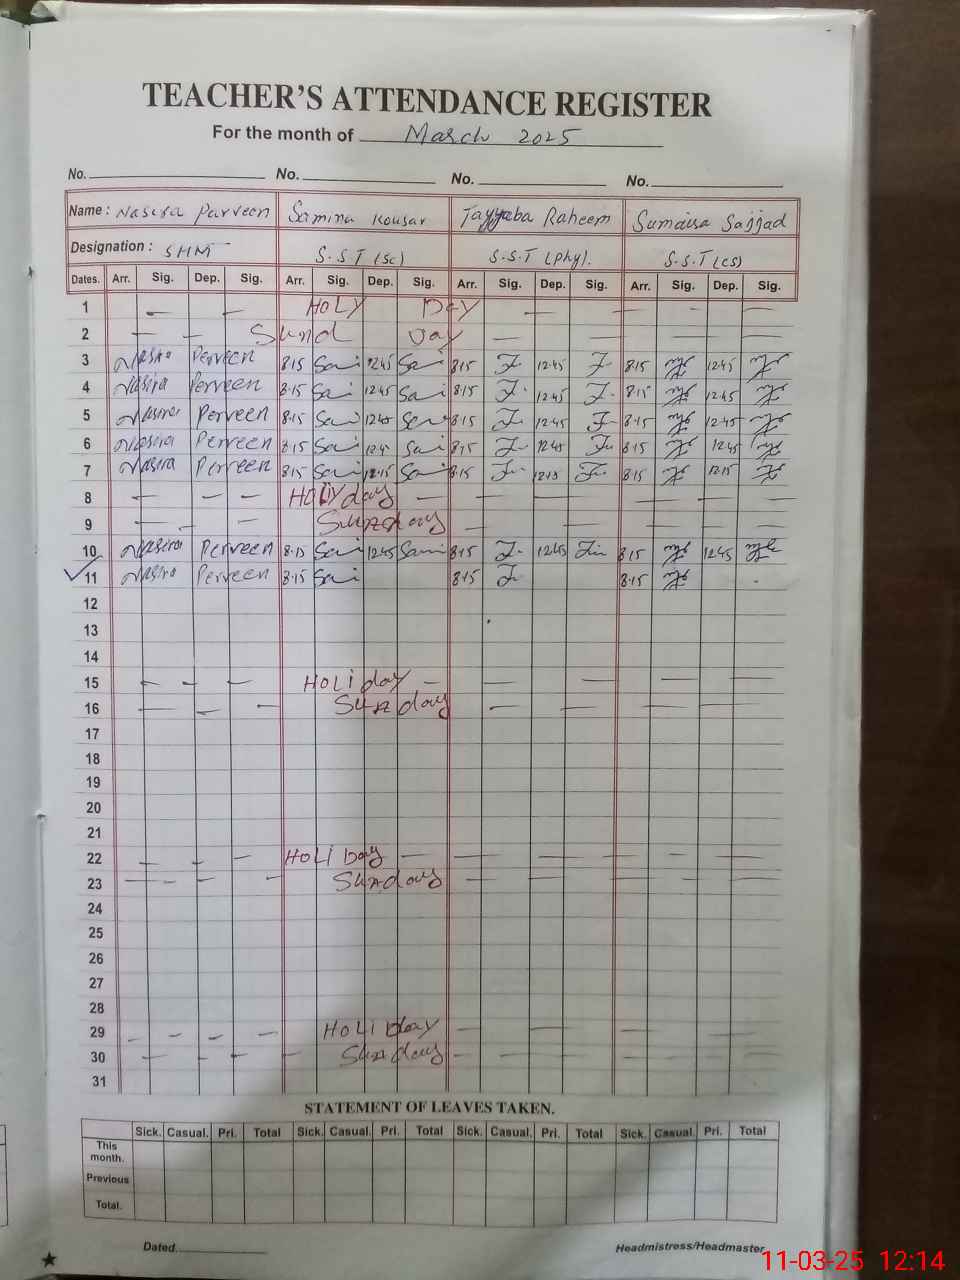 TEACHER'S ATTENDANCE REGISTER
For the month of March 2025
No. No. No. No.
Name: Nasira Parveen Samina Kousar Tayyaba Raheem Sumaira Sajjad
Designation: SHM S.S.T (Sc) S.S.T (Phy). S.S.T (CS)
Dates. Arr. Sig. Dep. Sig. Arr. Sig. Dep. Sig. Arr. Sig. Dep. Sig. Arr. Sig. Dep. Sig.
1 — — HOLY DAY — — — —
2 — — Sund Day — — — —
3 Nasira Perveen 8.15 Sami 12.45 Sami 8.15 12.45 8.15 12.45
4 Nasira Perveen 8.15 Sami 12.45 Sami 8.15 12.45 8.15 12.45
5 Nasira Perveen 8.15 Sami 12.45 Sami 8.15 12.45 8.15 12.45
6 Nasira Perveen 8.15 Sami 12.4 Sami 8.15 12.45 8.15 12.45
7 Nasira Perveen 8.15 Sami 12.15 Sami 8.15 12.15 8.15 12.15
8 — — — Holiyday — — — — — —
9 — - — Sunday — — — —
10 Nasira Perveen 8.15 Sami 12.45 Sami 8.15 12.45 8.15 12.45
11 Nasira Perveen 8.15 Sami 8.15 8.15
12
13
14
15 — — — HOLiday — — — — —
16 — — — Sunday — — — —
17
18
19
20
21
22 — — — HOLiDay — — — — — — —
23 — — — Sunday — — — — — —
24
25
26
27
28
29 — — — — HOLi Day — — — —
30 — — — — Sunday — — — — — —
31
STATEMENT OF LEAVES TAKEN.
Sick. Casual. Pri. Total Sick. Casual. Pri. Total Sick. Casual. Pri. Total Sick. Casual. Pri. Total
This month.
Previous
Total.
Dated. Headmistress/Headmaster
11-03-25 12:14